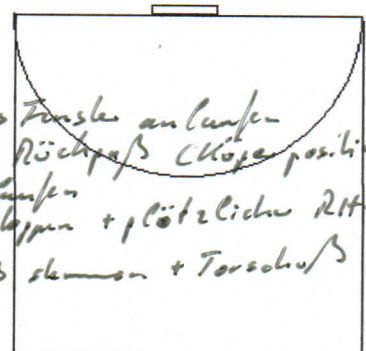 s Fenster anlaufen
Rückpaß (Körperpositi
laufen
loppen + plötzlicher RH
s stemmen + Torschuß